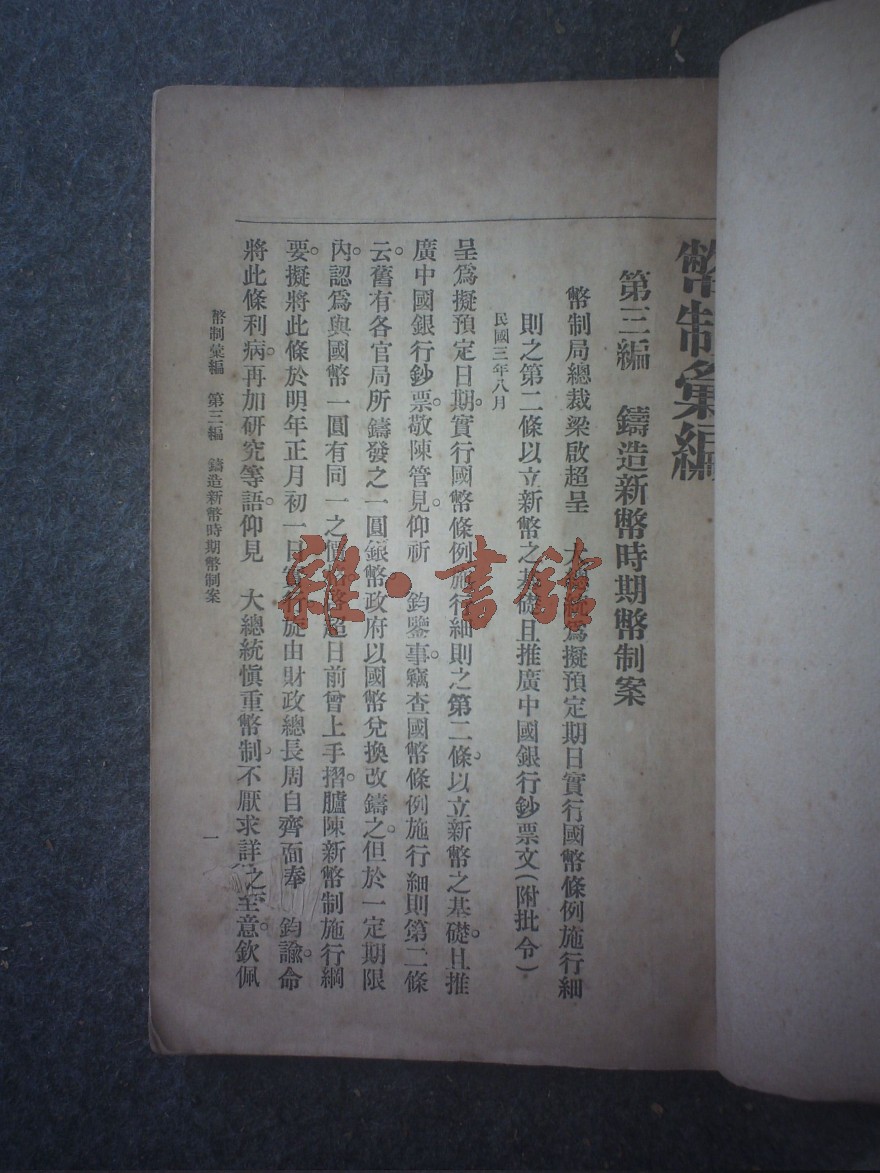 幣制彙編
第三編　鑄造新幣時期幣制案
幣制局總裁梁啟超呈　大總統爲擬預定期日實行國幣條例施行細
則之第二條以立新幣之基礎且推廣中國銀行鈔票文(附批令)
民國三年八月
呈爲擬預定日期。實行國幣條例施行細則之第二條、以立新幣之基礎。且推
廣中國銀行鈔票。敬陳管見。仰祈　鈞鑒事。竊查國幣條例施行細則第二條
云。舊有各官局所鑄發之一圓銀幣政府以國幣兌換改鑄之。但於一定期限
內。認爲與國幣一圓有同一之價超日前曾上手摺。臚陳新幣制施行綱
要。擬將此條於明年正月初一日實行旋由財政總長周自齊面奉　鈞諭。命
將此條利病。再加研究等語。仰見　大總統愼重幣制、不厭求詳之至意。欽佩
幣制彙編　第三編　鑄造新幣時期幣制案
一
雜·書館